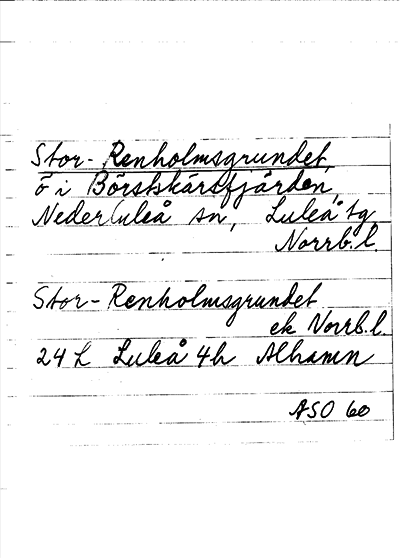 Stor-Renholmsgrundet,
ö i Börstskärsfjärden,
Nederluleå sn, Luleå tg
Norrb.l.
Stor-Renholmsgrundet
ek Norrb.l.
24 L Luleå 4h Alhamn
ASO 60